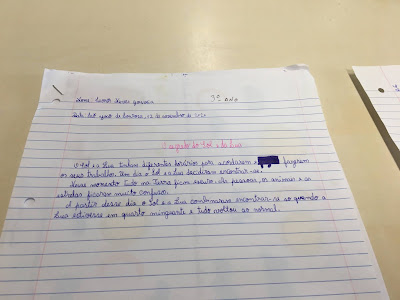 3º ANO
de novembro de
O Sol e a Lua tinham diferentes horários para acordarem e fazerem
os seus trabalhos. Um dia o Sol e a Lua decidiram encontrar-se.
Nesse momento tudo na Terra ficou escuro. As pessoas, os animais e as
estrelas ficaram muito confusos.
A partir desse dia o Sol e a Lua combinaram encontrar-se só quando a
Lua estivesse em quarto minguante e tudo voltou ao normal.